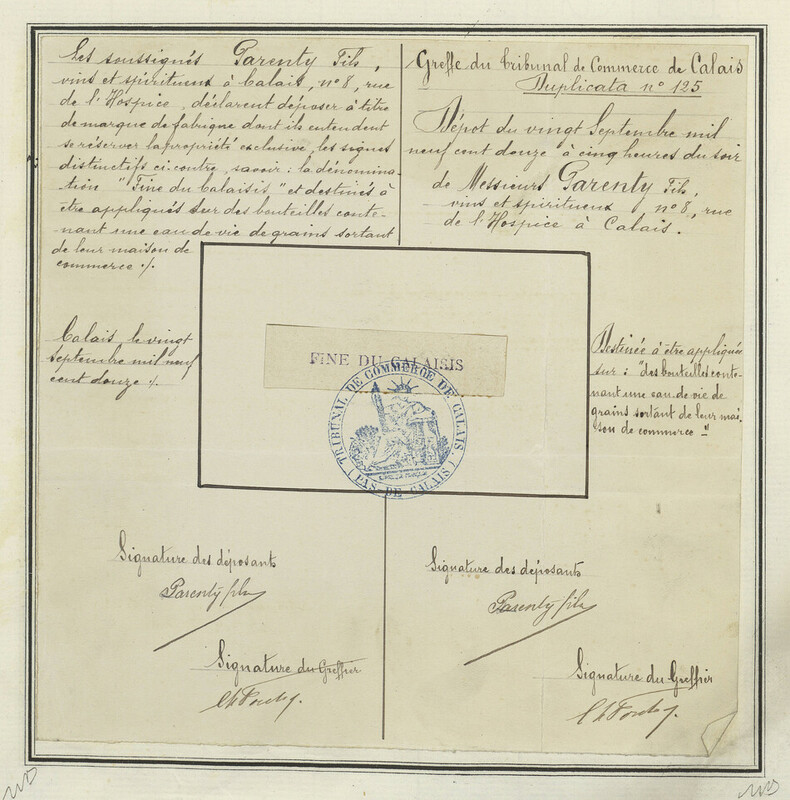 Les soussignés Parenty Fils,
vins et spiritueux à Calais, n° 8, rue
de l'Hospice, déclarent déposer à titre
de marque de fabrique dont ils entendent
se réserver la propriété exclusive, les signes
distinctifs ci-contre, savoir : la dénomina-
tion "Fine du Calaisis" et destinés à
être appliqués sur des bouteilles conte-
nant une eau de vie de grains sortant
de leur maison de
commerce ./.
Calais, le vingt
Septembre mil neuf
cent douze ./.
Greffe du Tribunal de Commerce de Calais
Duplicata n° 125
Dépot du vingt Septembre mil
neuf cent douze à cinq heures du soir
de Messieurs Parenty Fils,
vins et spiritueux, n° 8, rue
de l'Hospice à Calais.
FINE DU CALAISIS
TRIBUNAL DE COMMERCE DE CALAIS
(PAS DE CALAIS)
Destinée à être appliquée
sur : "des bouteilles conte-
nant une eau de vie de
grains sortant de leur mai-
son de commerce -"
Signature des déposants
Parenty fils
Signature du Greffier
Signature des déposants
Parenty fils
Signature du Greffier